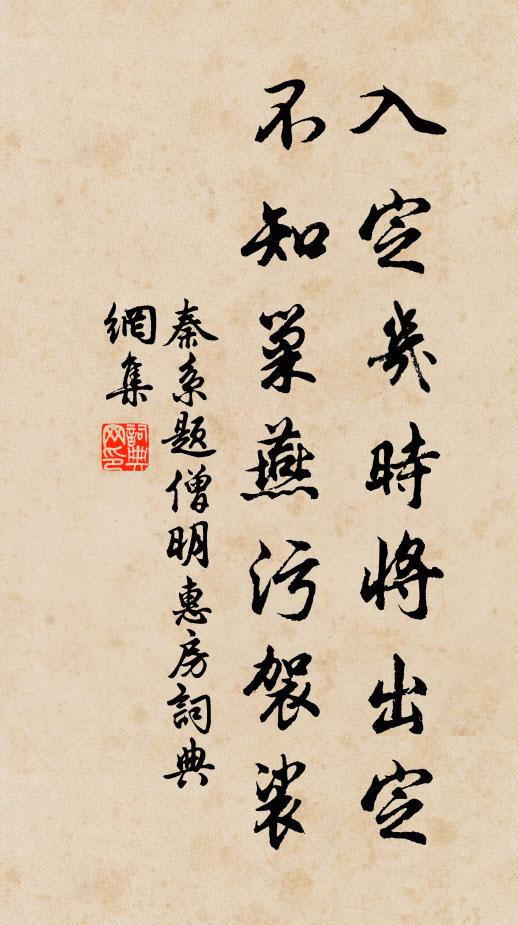 入定幾時將出定
不知巢燕污袈裟
秦系題僧明惠房詞典
網集
詞典網印